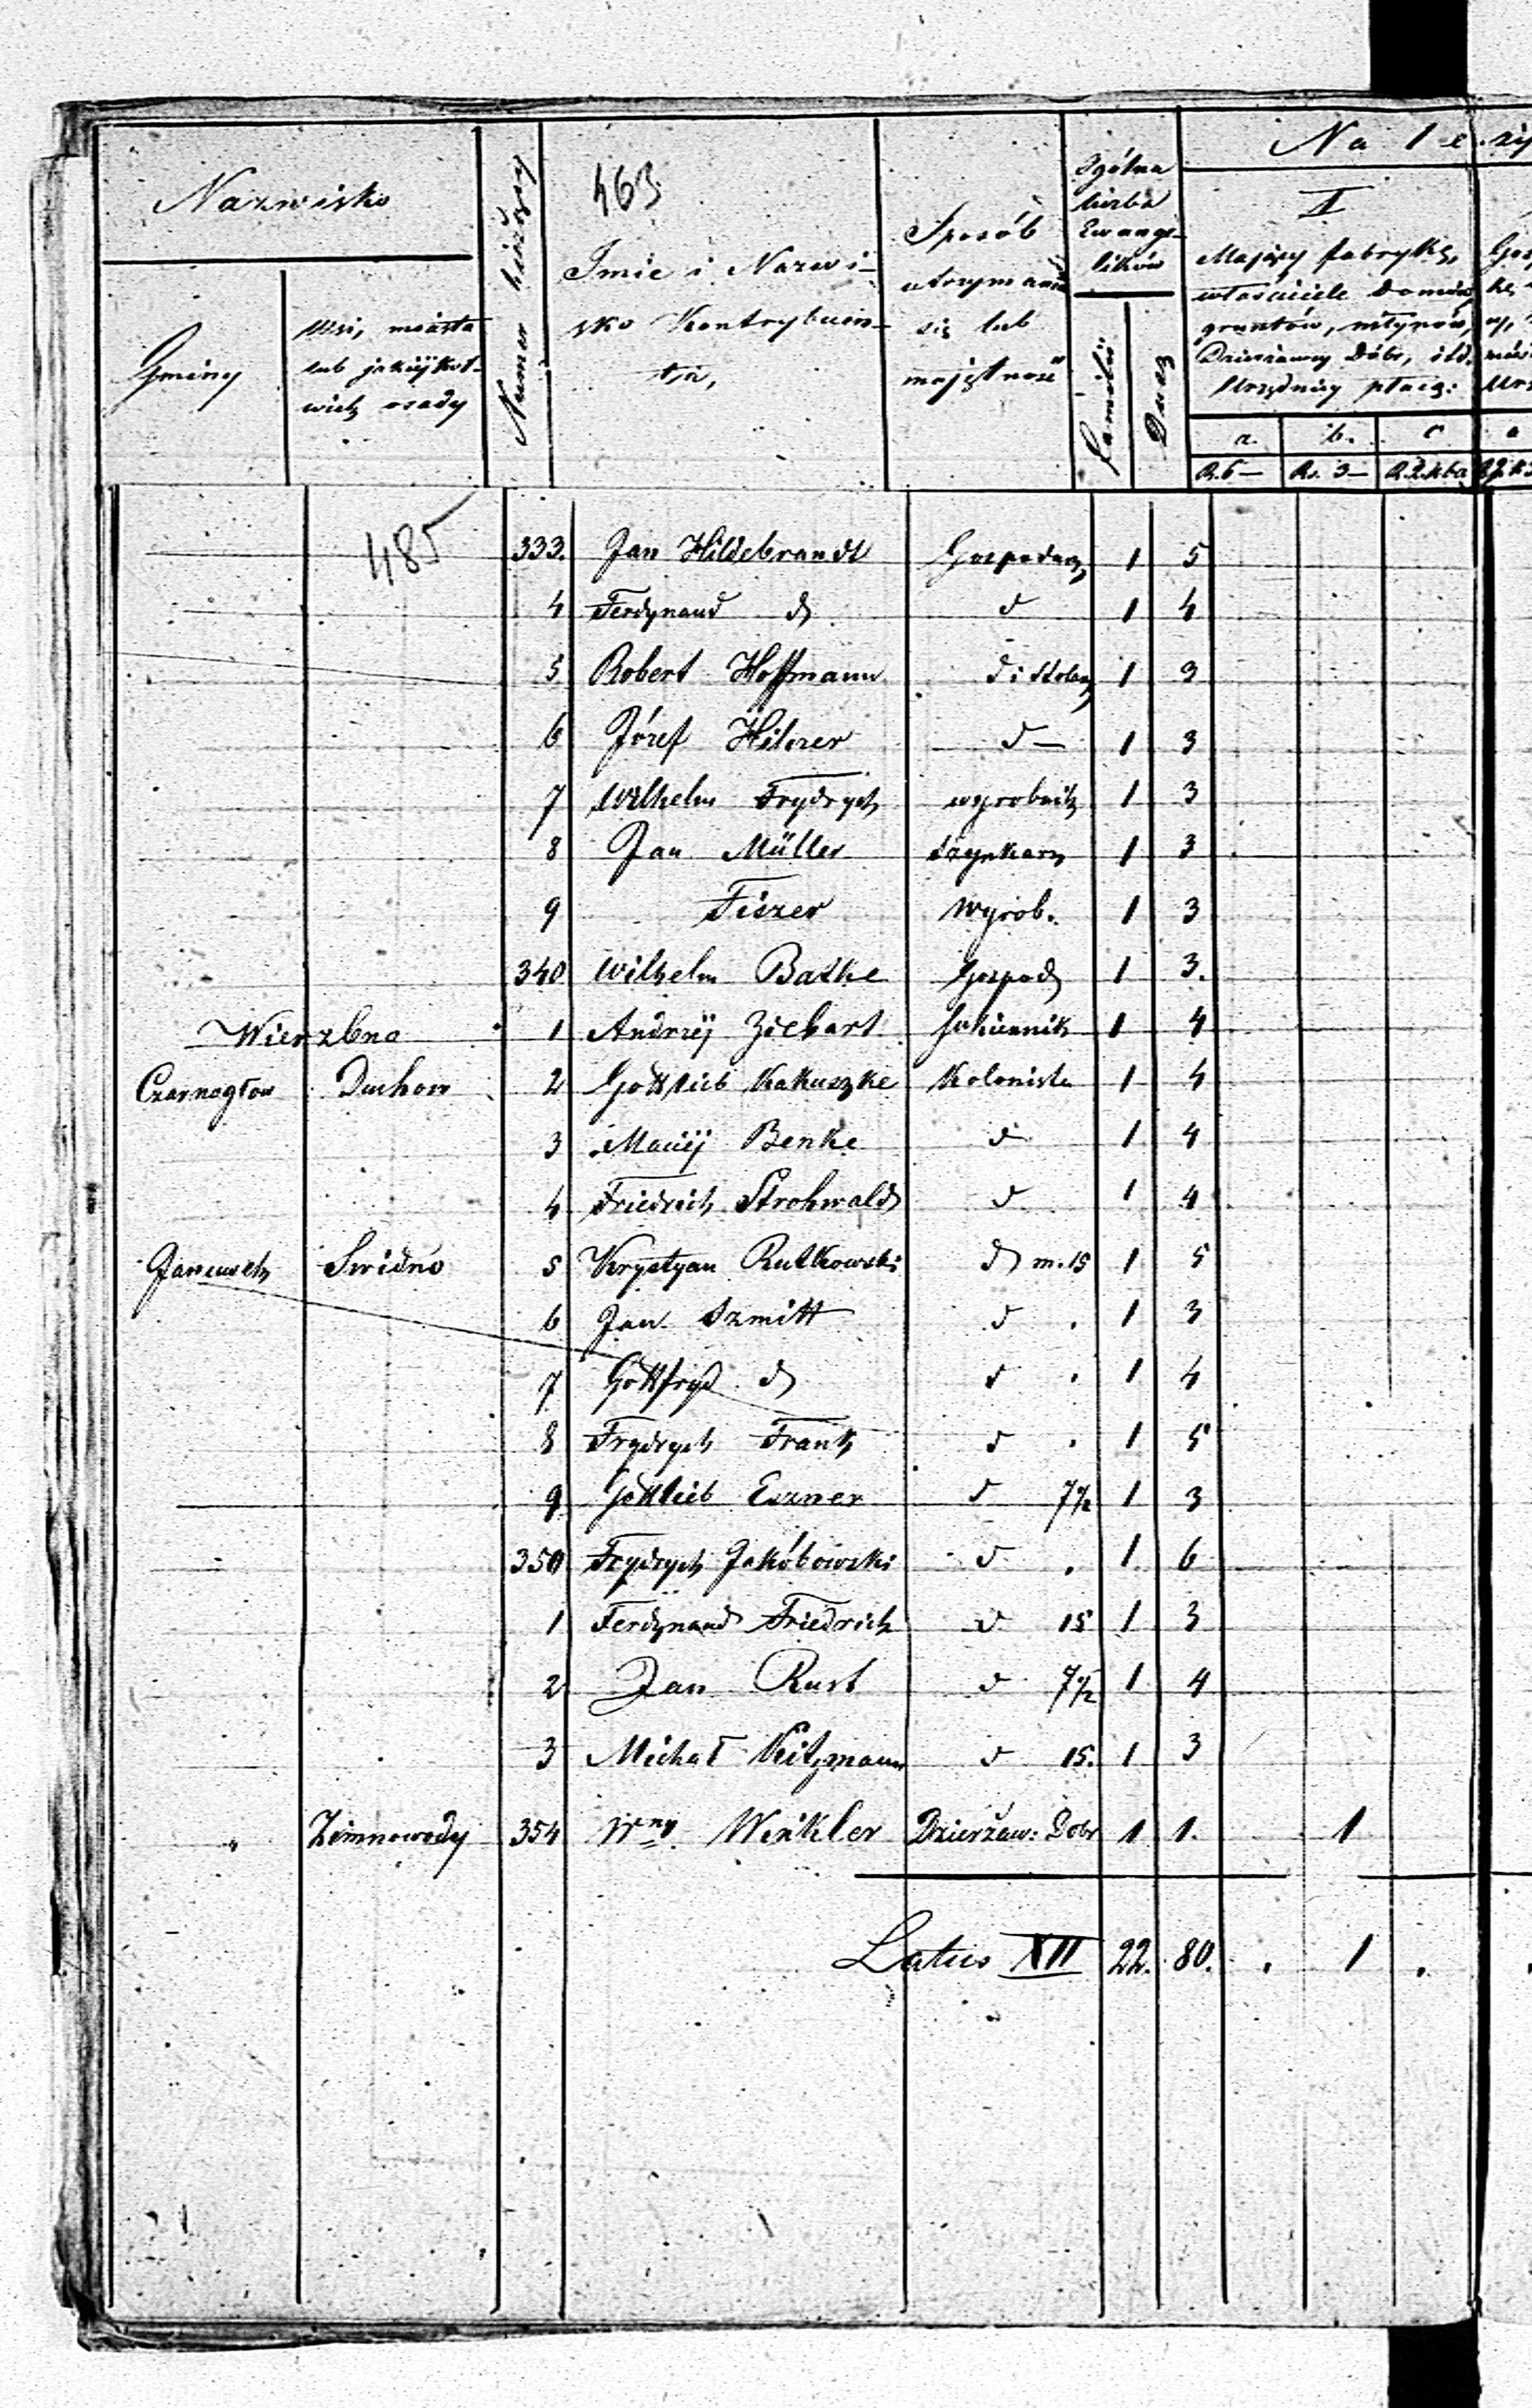 Nazwisko
Gminy
Wsi, miasta
lub jakiijkol-
wiek osady
Numer bieżący
463
Imie i Nazwi-
sko Kontrybuen-
ta,
Sposób
utrzymania
się lub
majętność
Ogólna
liczba
Ewange-
lików
Familii
Dusz
Na 1-e
I
Mający fabrykę,
właściciele domów,
gruntów, młynów,
Dzierżawcy Dóbr, itd.
Urzędnicy płacą:
a. b. c
R. 6— Rs. 3—
485
333. Jan Hildebrandt Gospodarz 1 5
4 Ferdynand d d 1 4
5 Robert Hoffmann d i stolarz 1 3
6 Józef Hilszer d— 1 3
7 Wilhelm Frydrych wyrobnik 1 3
8 Jan Müller szynkarz 1 3
9 Fiszer wyrob. 1 3
340 Wilhelm Batke Gospod 1 3.
Wierzbno 1 Andrzij Ziebart sukiennik 1 4
Czarnogłow Duchow 2 Gottlieb Kakuszke Kolonista 1 4
3 Maciij Benke d 1 4
4 Friedrich Strohwald d 1 4
Swidno 5 Krystyan Rutkowski d m. 15 1 5
6 Jan Szmitt d . 1 3
7 Gottfryd d d . 1 4
8 Frydrych Frank d . 1 5
9 Gottlieb Eszner d 7½ 1 3
350 Frydrych Jakóbowski d . 1 6
1 Ferdynand Friedrich d 15 1 3
2 Jan Rust d 7½ 1 4
3 Michał Kitzmann d 15. 1 3
" Zimnowody 354 Wny Winkler Dzierżaw: Dobr 1 1. 1
Latus XII 22. 80. . 1 .